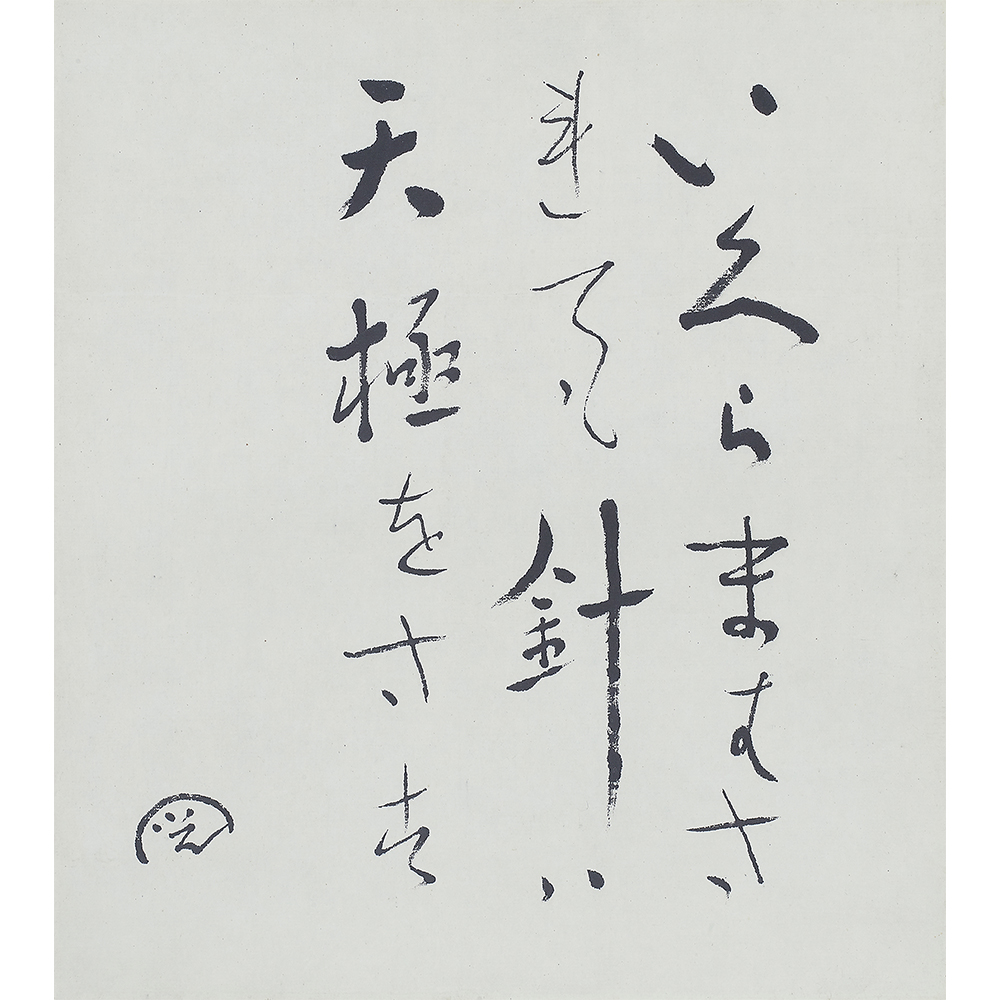 いくらまはさ
れても針ハ
天極をさす
光